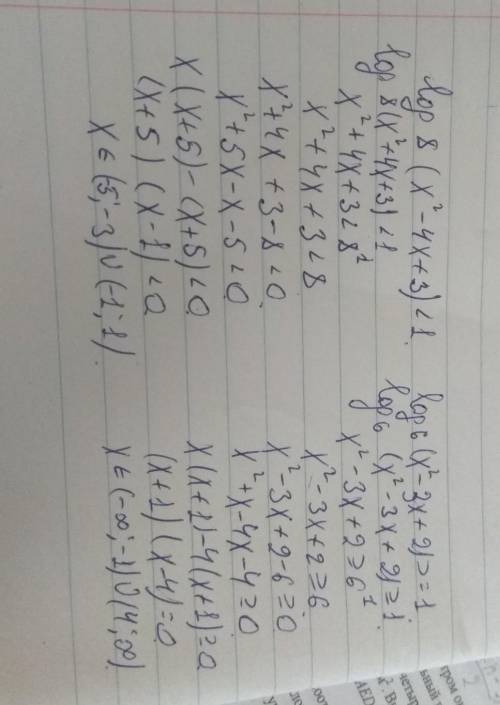 log 8 (x² - 4x + 3) < 1
log 8 (x² + 4x + 3) < 1
x² + 4x + 3 < 8¹
x² + 4x + 3 < 8
x² + 4x + 3 - 8 < 0
x² + 5x - x - 5 < 0
x (x + 5) - (x + 5) < 0
(x + 5) (x - 1) < 0
x ∈ (-5; -3) ∪ (-1; 1)
log 6 (x² - 3x + 2) >= 1
log 6 (x² - 3x + 2) ≥ 1
x² - 3x + 2 ≥ 6¹
x² - 3x + 2 ≥ 6
x² - 3x + 2 - 6 ≥ 0
x² + x - 4x - 4 ≥ 0
x (x + 1) - 4 (x + 1) ≥ 0
(x + 1) (x - 4) = 0
x ∈ (-∞; -1) ∪ (4; ∞)